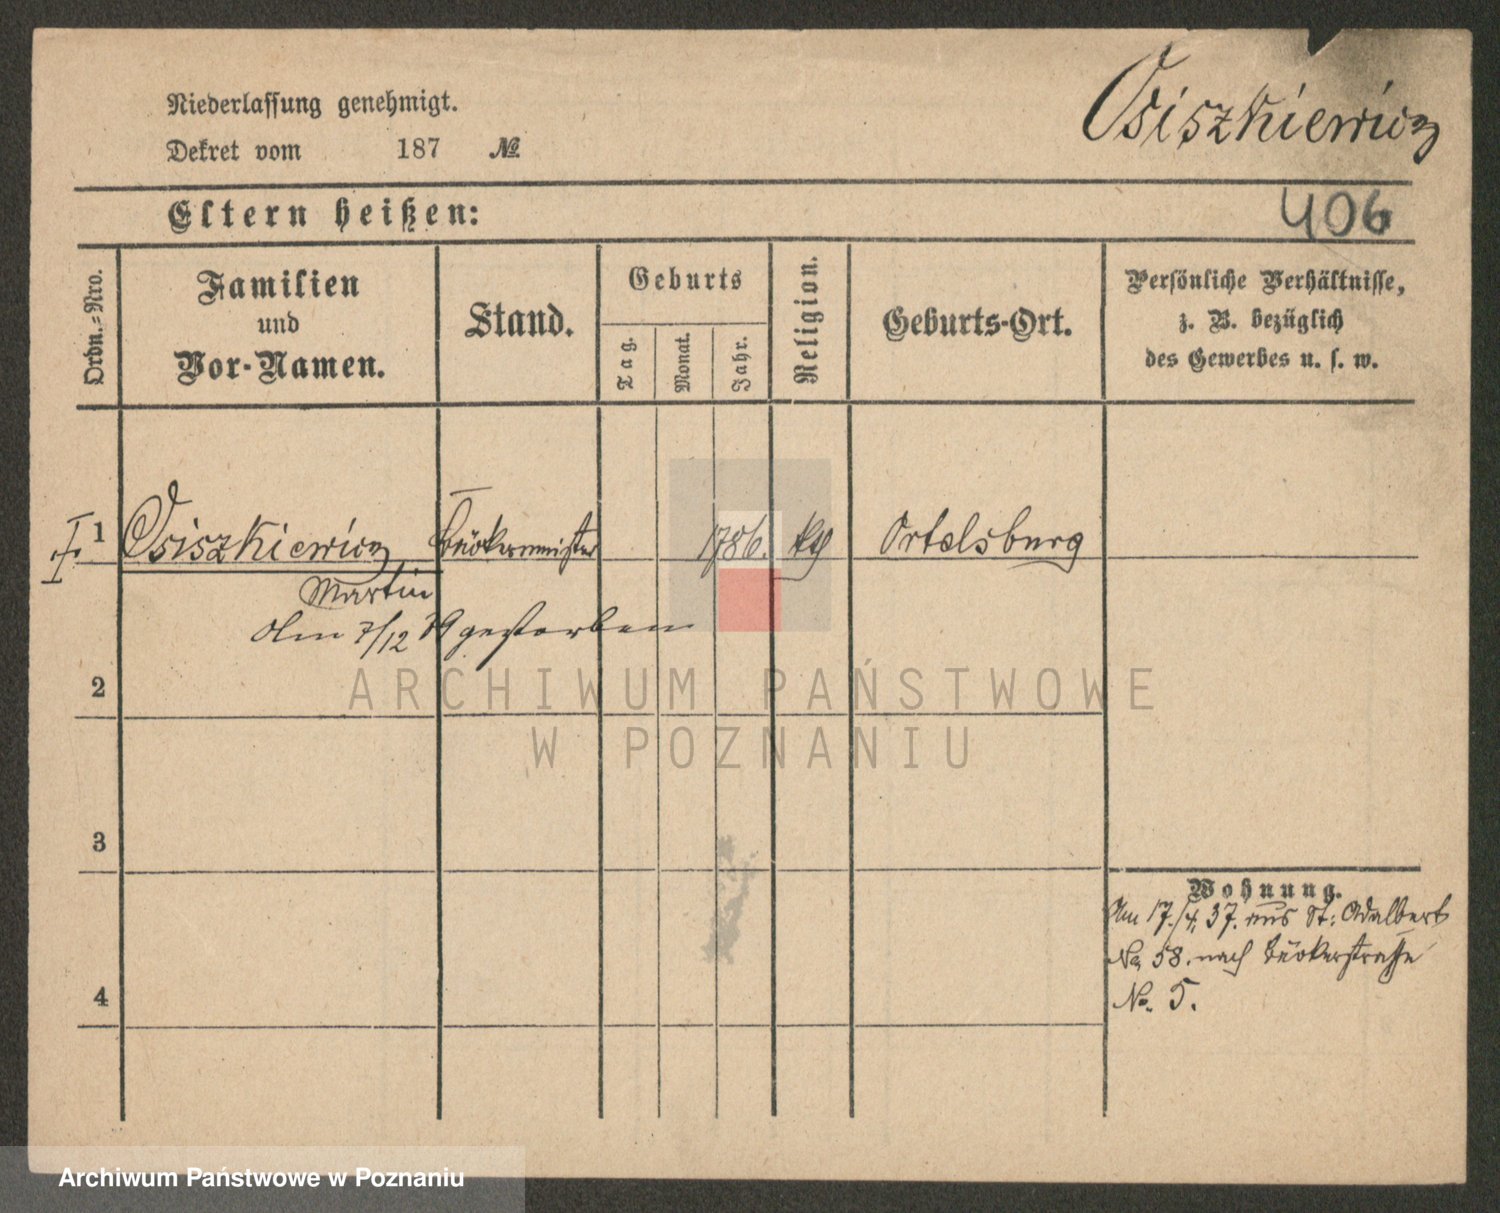 Osiszkiewicz
Niederlassung genehmigt.
Dekret vom 187 №
Eltern heißen:
406
Ordn.-Nro.
Familien
und
Vor-Namen.
Stand.
Geburts
Tag.
Monat.
Jahr.
Religion.
Geburts-Ort.
Persönliche Verhältnisse,
z. B. bezüglich
des Gewerbes u. s. w.
1 Osiszkiewicz Bäckermeister 1786. Ortelsburg
Martin
Am 7/12 gestorben
2
ARCHIWUM PAŃSTWOWE
W POZNANIU
3
Wohnung.
Am 17./4. 37. aus St: Adalbert
No. 58. nach Bäckerstraße
No. 5.
4
Archiwum Państwowe w Poznaniu